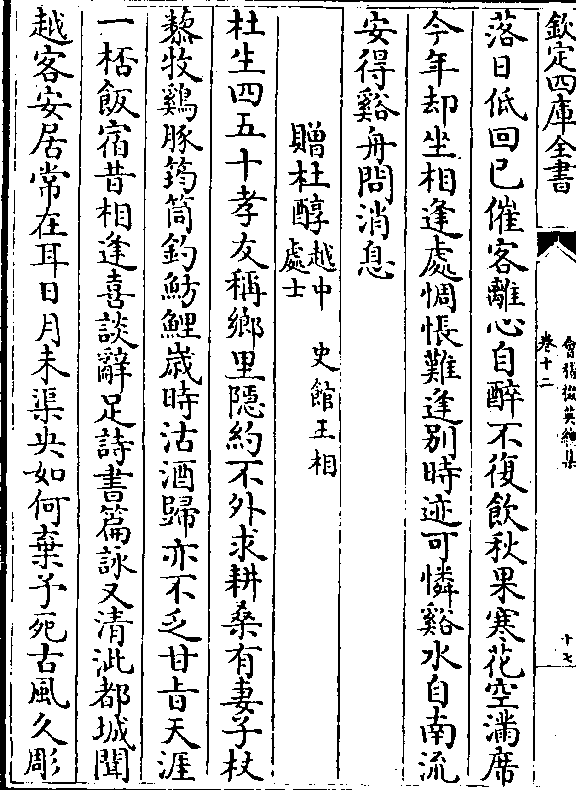 欽定四庫全書
會稽掇英總集
卷十二
十七
落日低回已催客離心自醉不復飲秋果寒花空滿席
今年却坐相逢處惆悵難逢别時迹可憐谿水自南流
安得谿舟問消息
贈杜醇越中處士 史館王相
杜生四五十孝友稱鄉里隱約不外求耕桑有妻子杖
藜牧鷄豚筠筒釣魴鯉歲時沽酒歸亦不乏甘旨天涯
一桮飯宿昔相逢喜談辭足詩書篇詠又清泚都城聞
越客安居常在耳日月未渠央如何棄予死古風久彫